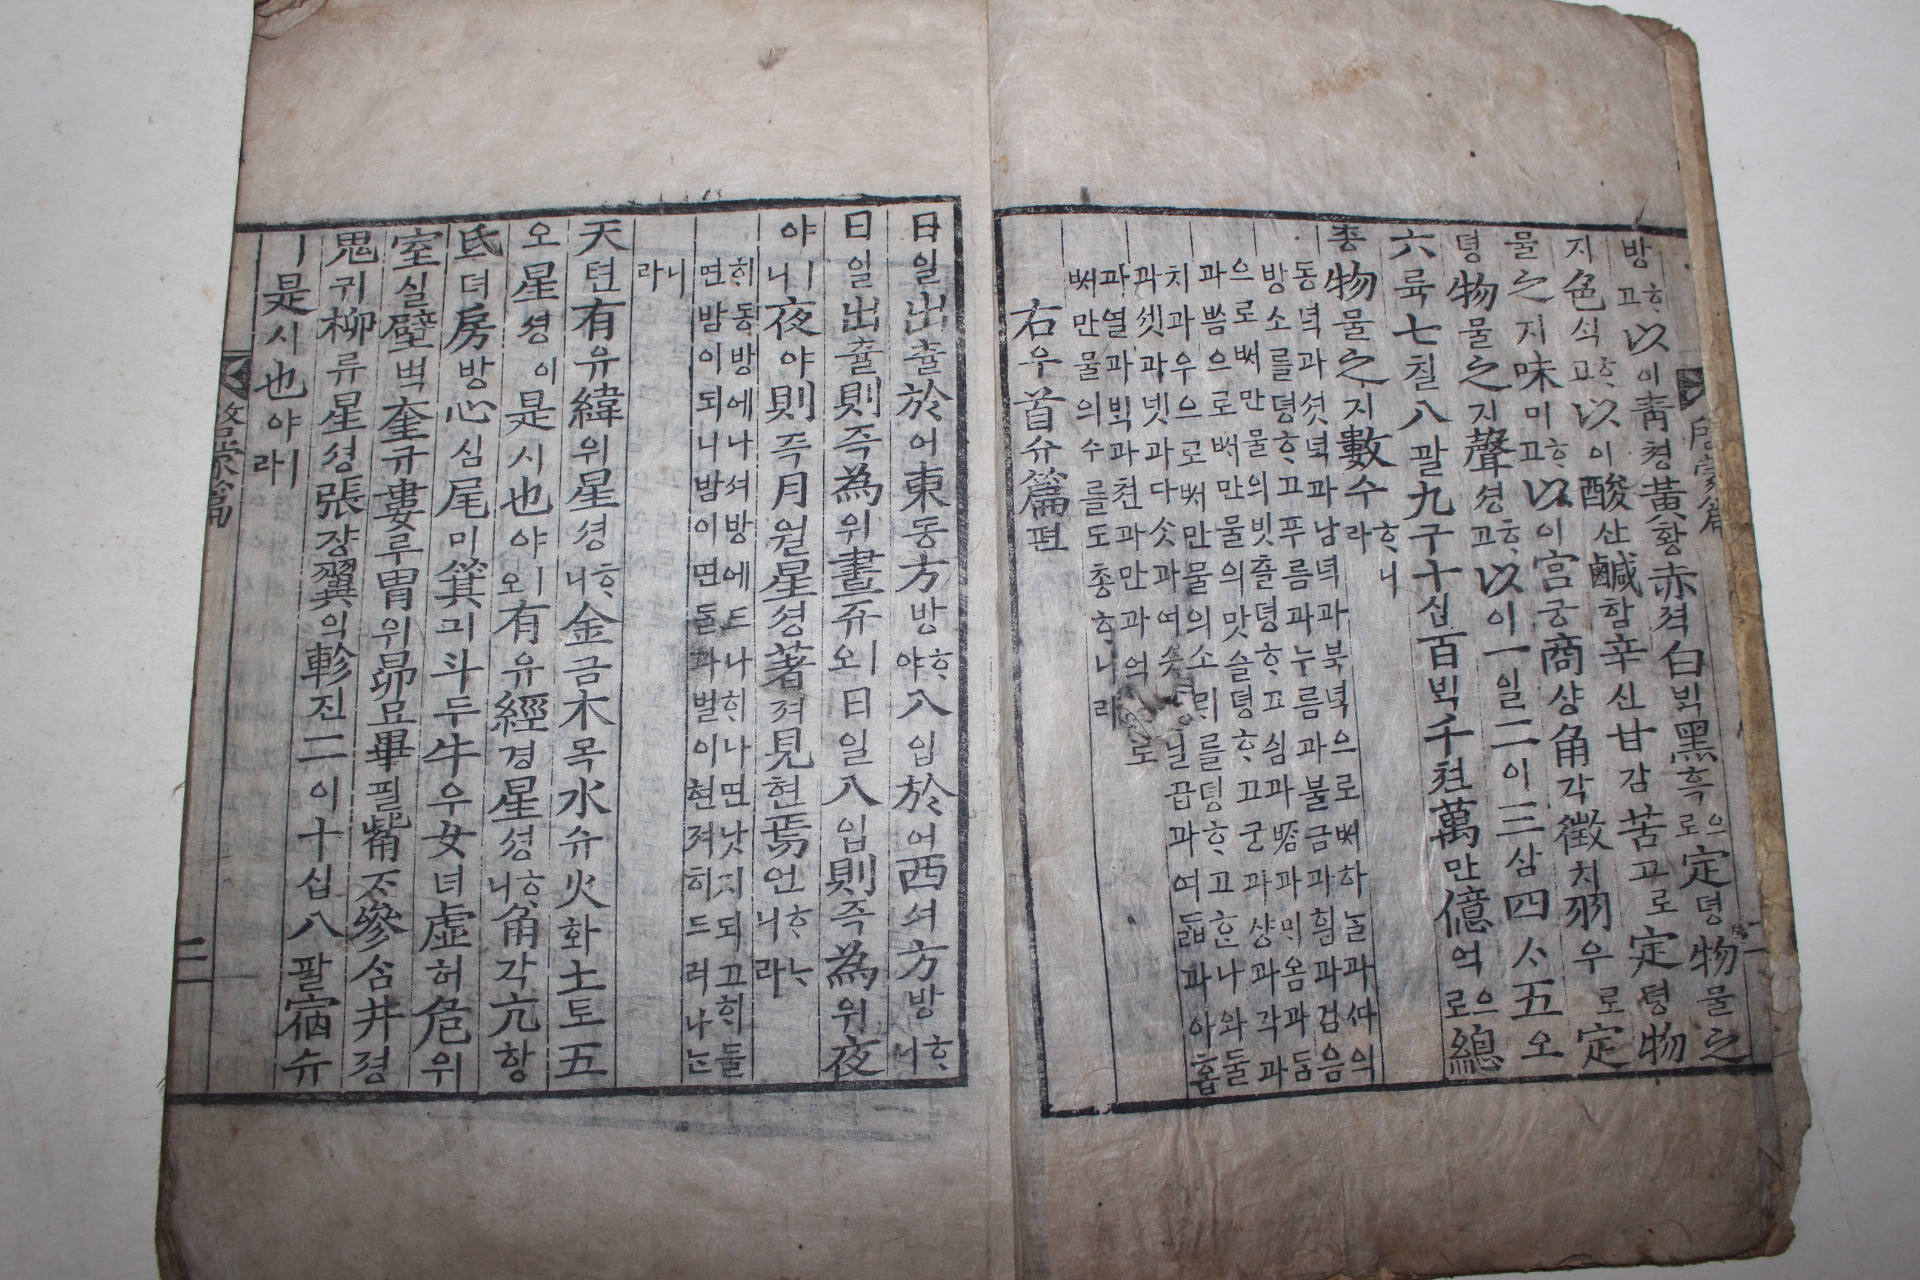 방ᄒᆞ고以이靑쳥黃황赤젹白ᄇᆡᆨ黑흑으로定뎡物물之
지色ᄉᆡᆨᄒᆞ고以이酸산鹹함辛신甘감苦고로定뎡物
물之지味미ᄒᆞ고以이宮궁商샹角각徵치羽우로定
뎡物물之지聲셩ᄒᆞ고以이一일二이三삼四ᄉᆞ五오
六륙七칠八팔九구十십百ᄇᆡᆨ千쳔萬만億억으로總
총物물之지數수ᄒᆞ니라
동녁과셧녁과남녁과북녁으로ᄡᅥ하ᄂᆞᆯ과ᄯᅡ의
방소를뎡ᄒᆞ고푸름과누름과불금과흼과검음
으로ᄡᅥ만물의빗츨뎡ᄒᆞ고
과ᄡᅳᆷ으로ᄡᅥ만물의맛슬뎡ᄒᆞ고궁과샹과각과
치과우으로ᄡᅥ만물의소ᄅᆡ를뎡ᄒᆞ고ᄒᆞᆫ나와둘
과셋과넷과다ᄉᆞᆺ과여ᄉᆞᆺ과닐곱과여ᄃᆞᆲ과아홉
과열과ᄇᆡᆨ과쳔과만과억으로
ᄡᅥ만물의수를도총ᄒᆞ니라
右우首슈篇편
啓蒙篇
二
日일出츌於어東동方방ᄒᆞ야入입於어西셔方방ᄒᆞ니
日일出츌則즉為위晝쥬ㅣ오日일入입則즉為위夜
야ㅣ니夜야則즉月월星셩著져見현焉언ᄒᆞᄂᆞ니라
ᄒᆡ동방에나셔방에드나ᄒᆡ나면낫지되고ᄒᆡ들
면밤이되니밤이면ᄃᆞᆯ과별이현져히드러나ᄂᆞ
니라
天텬有유緯위星셩ᄒᆞ니金금木목水슈火화土토五
오星셩이是시也야ㅣ오有유經경星셩ᄒᆞ니角각亢항
氐뎌房방心심尾미箕긔斗두牛우女녀虛허危위
室실壁벽奎규婁루胃위昴묘畢필觜ᄌᆞ參ᄉᆞᆷ井졍
鬼귀柳류星셩張쟝翼익軫진二이十십八팔宿슈
ㅣ是시也야ㅣ라
啓蒙篇
二